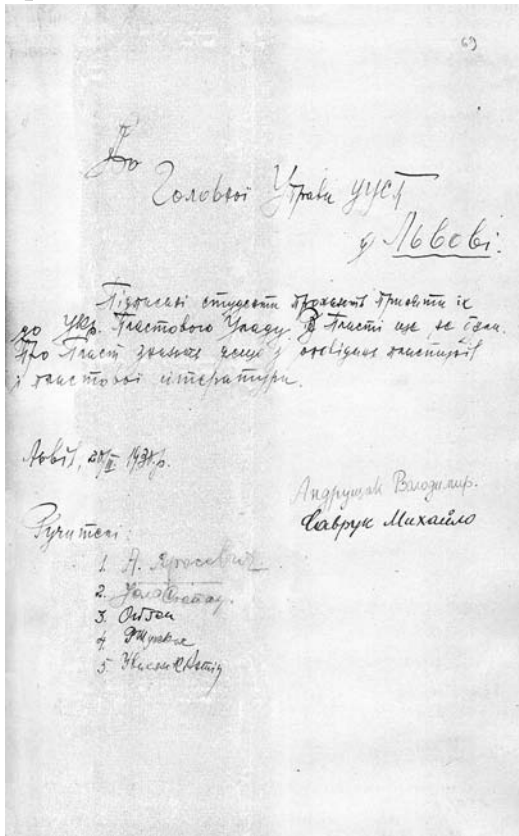 69
До
Головної Управи УУСТ
у Львові.
Підписані студенти прохають приняти їх
до Укр. Пластового Уладу. В Пласті ще не були.
Про Пласт знають дещо з оповідань пластунів
і пластової літератури.
Львів, 1930 р.
Андрущак Володимир.
Саврук Михайло
Ручителі:
1. А.
2.
3.
4.
5.